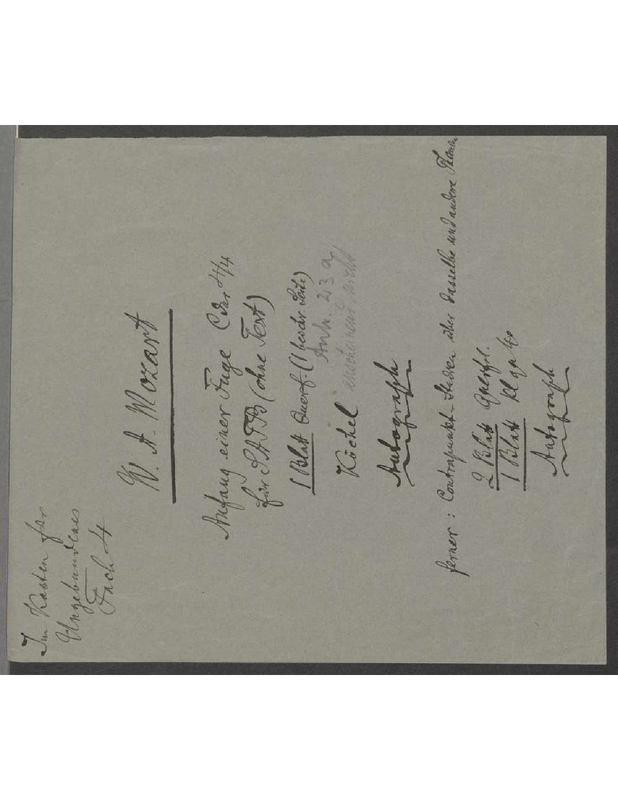 Im Kasten für
Ungebundenes
Fach 4
W. A. Mozart
Anfang einer Fuge C dur 4/4
für SATB (ohne Text)
1 Blatt Querf. (1 beschr. Seite)
Köchel Anh. 23 a
Autograph
ferner: Contrapunkt-Studien über dasselbe und andere Themen
2 Blatt Querf.
1 Blatt kl
Autograph